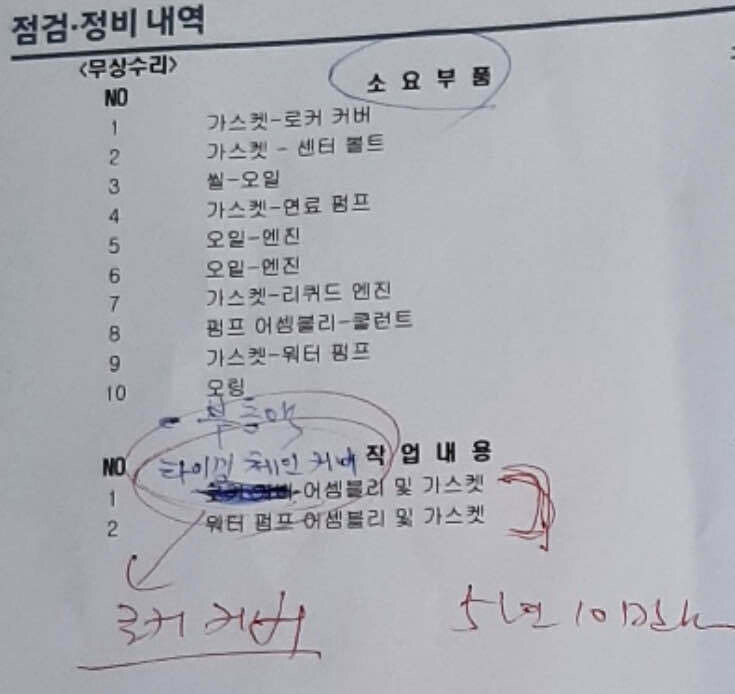 점검·정비 내역
<무상수리>
NO 소 요 부 품
1 가스켓-로커 커버
2 가스켓 - 센터 볼트
3 씰-오일
4 가스켓-연료 펌프
5 오일-엔진
6 오일-엔진
7 가스켓-리퀴드 엔진
8 펌프 어셈블리-쿨런트
9 가스켓-워터 펌프
10 오링
- 부동액
NO 작 업 내 용
타이밍 체인 커버
1 어셈블리 및 가스켓
2 워터 펌프 어셈블리 및 가스켓
로커 커버
5년 10만km